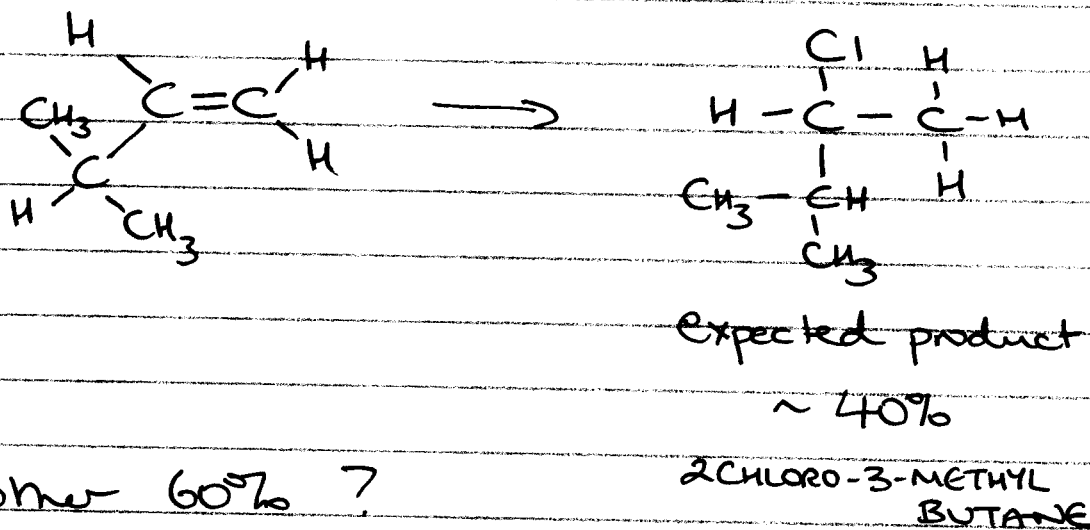 H H
C=C
CH3 H
C
H CH3
Cl H
H - C - C - H
CH3 - CH H
CH3
expected product
~ 40%
60% ?
2CHLORO-3-METHYL
BUTANE